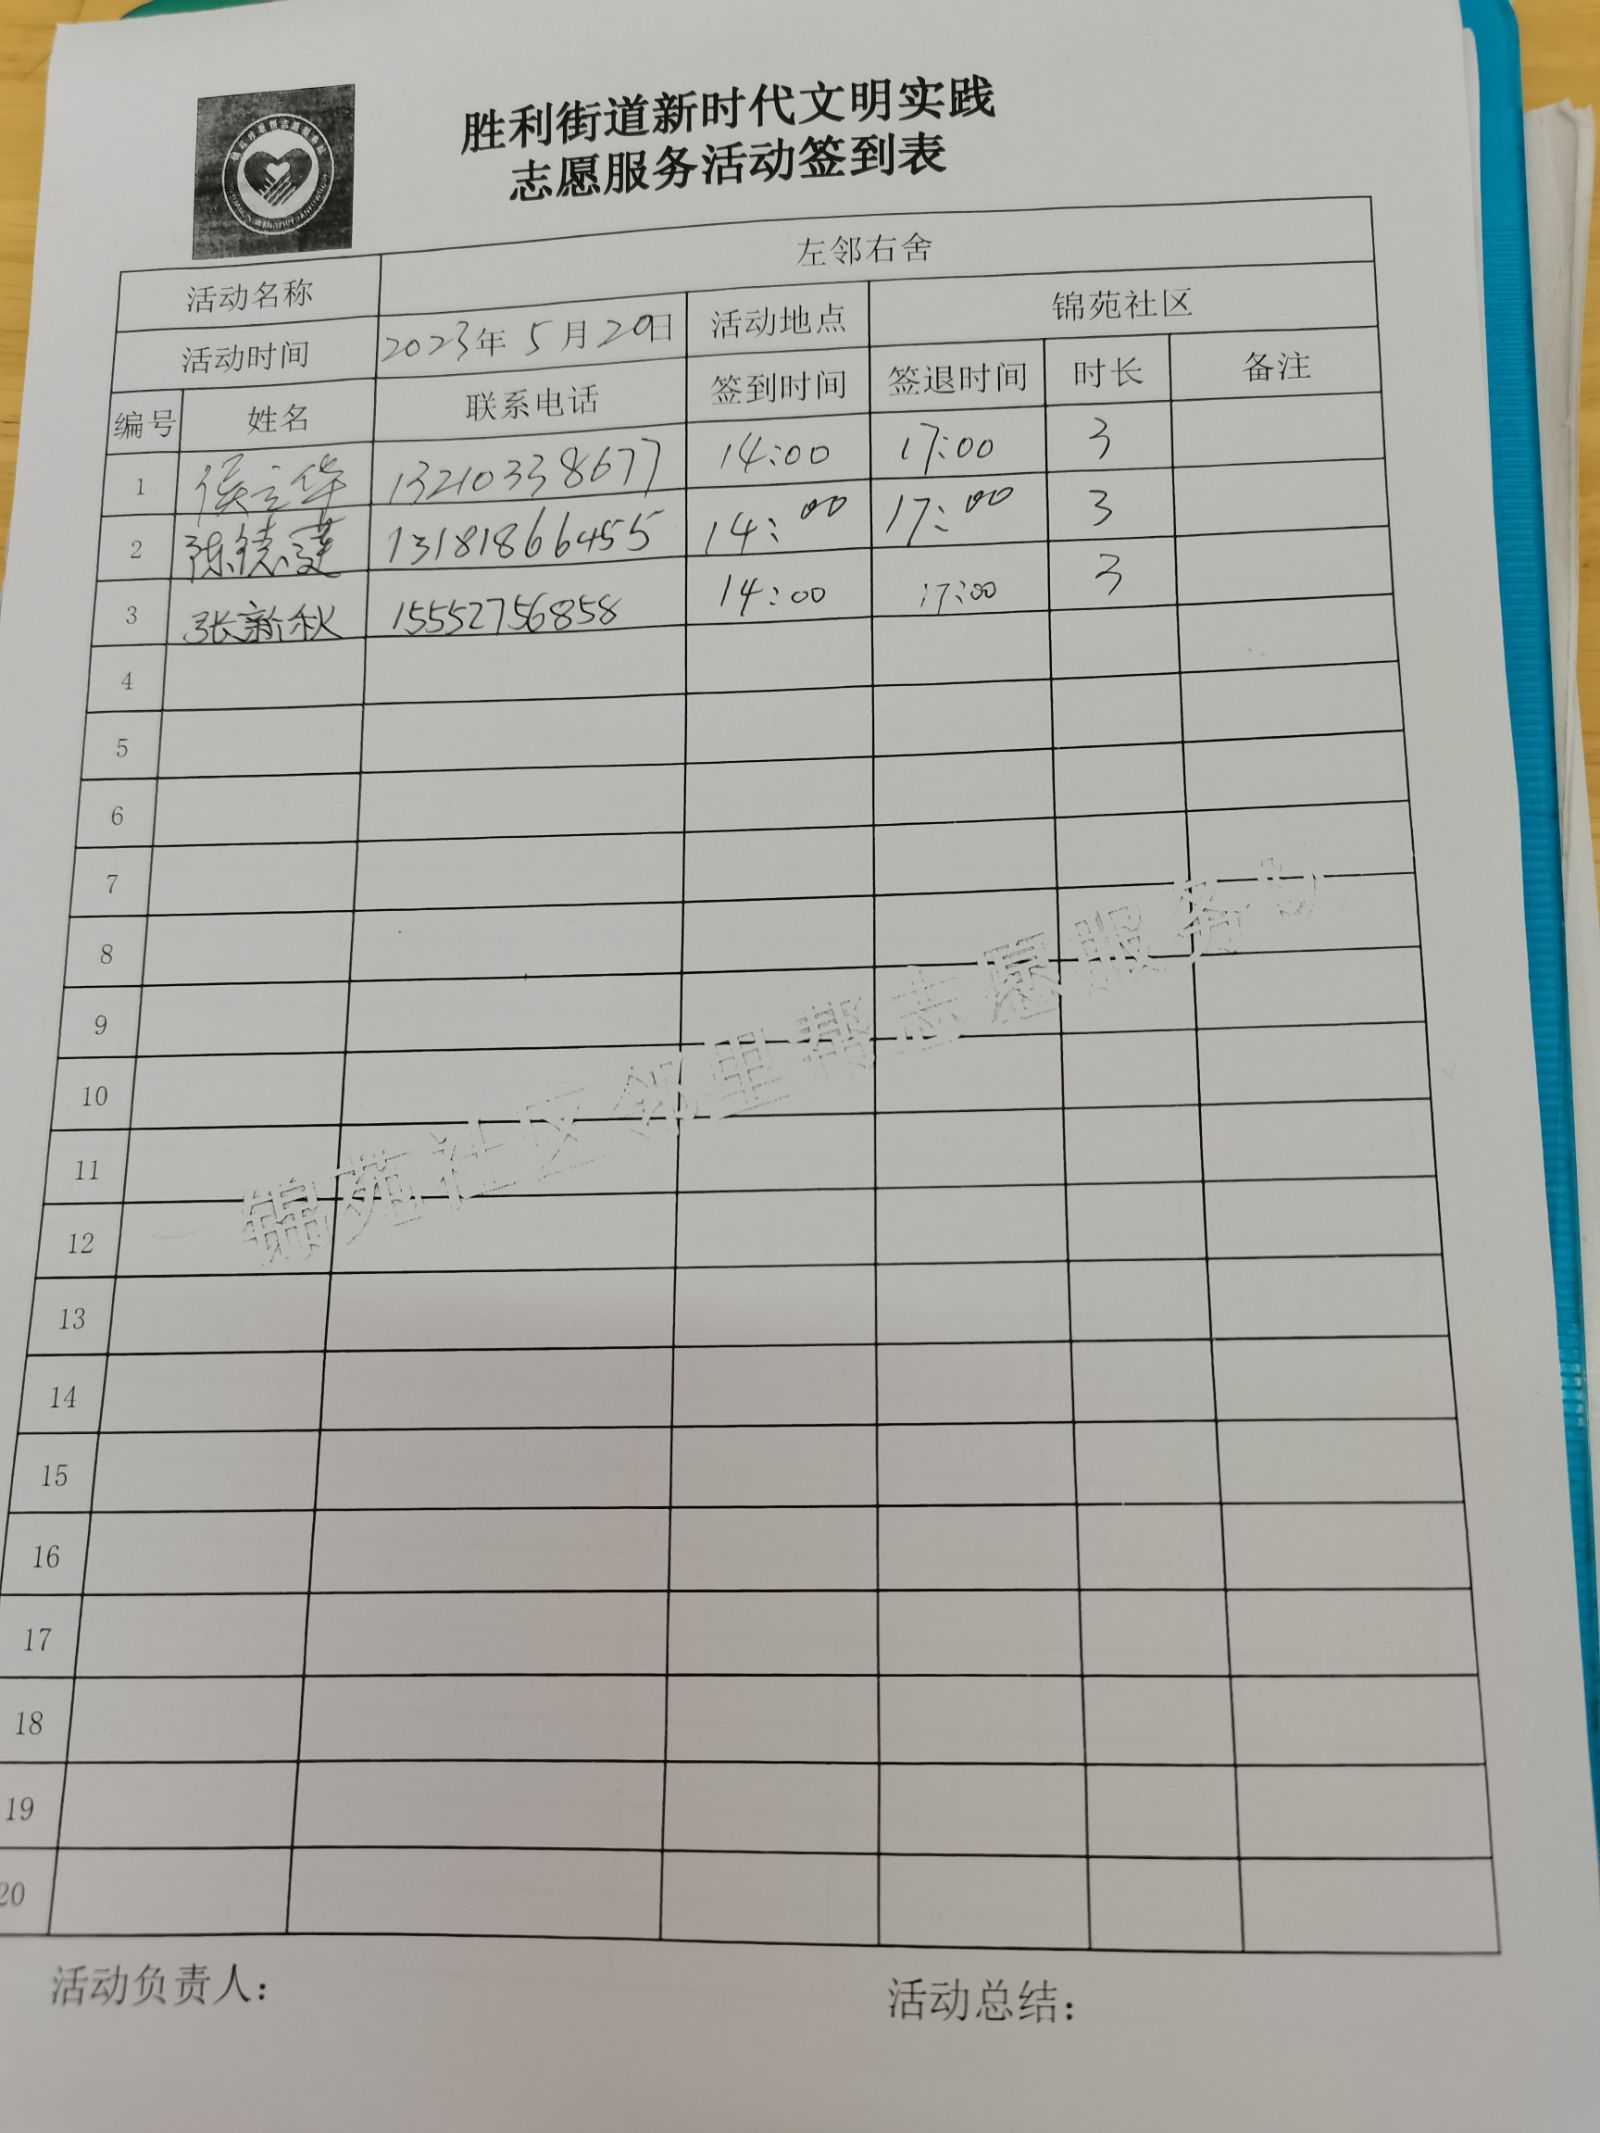 胜利街道新时代文明实践
志愿服务活动签到表
活动名称 左邻右舍
活动时间 2023年 5月20日 活动地点 锦苑社区
编号 姓名 联系电话 签到时间 签退时间 时长 备注
1 侯立华 13210338677 14:00 17:00 3
2 陈德 13181866455 14:00 17:00 3
3 张新秋 15552756858 14:00 17:00 3
4
5
6
7
8
9
10
11
12
13
14
15
16
17
18
19
20
锦苑社区邻里帮志愿服务
活动负责人: 活动总结: